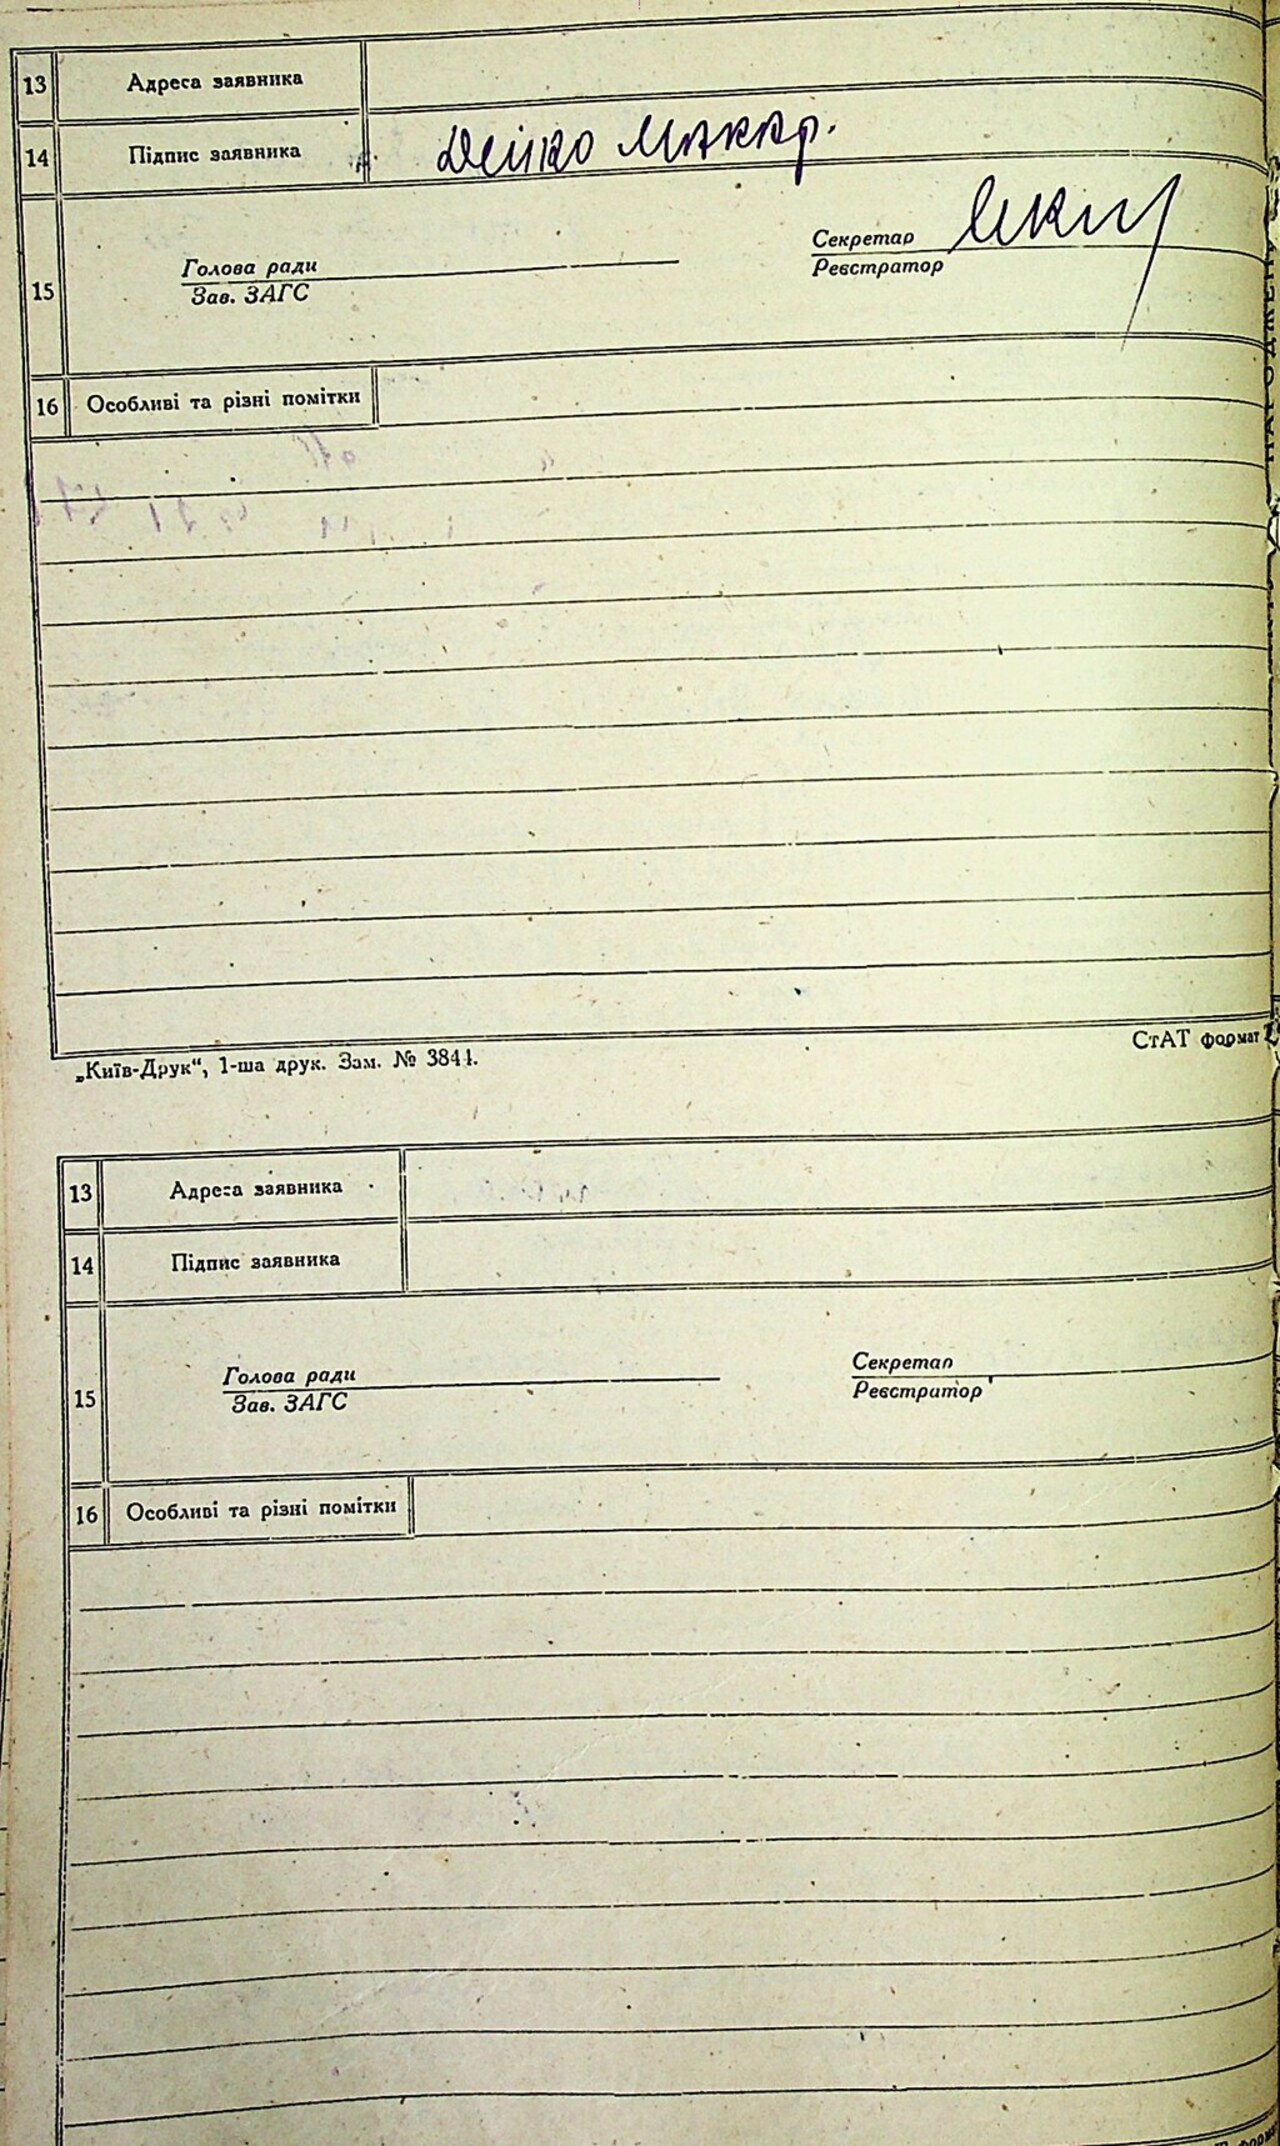 13 Адреса заявника
14 Підпис заявника Дейко Макар.
Голова ради Секретар
15 Зав. ЗАГС Реєстратор
16 Особливі та різні помітки
„Київ-Друк“, 1-ша друк. Зам. № 3844. СтАТ формат
13 Адреса заявника
14 Підпис заявника
Голова ради Секретар
15 Зав. ЗАГС Реєстратор
16 Особливі та різні помітки